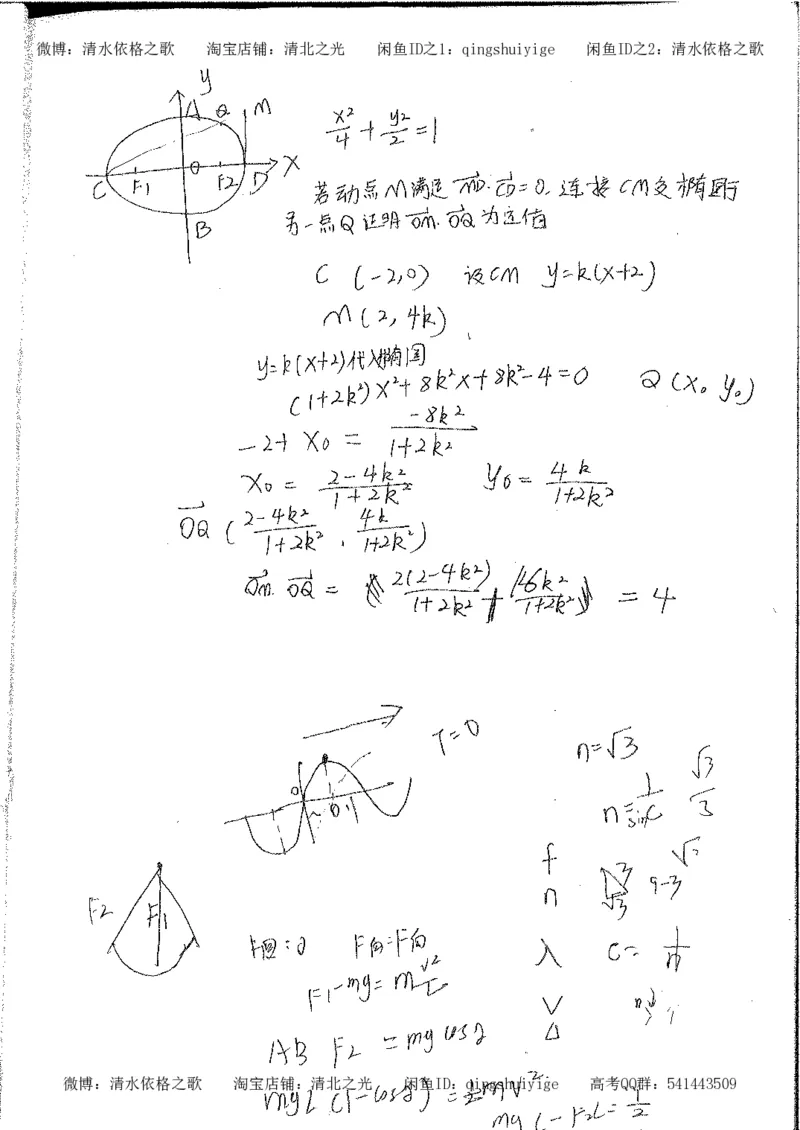 微博：清水依格之歌 淘宝店铺：清北之光 闲鱼ID之1：qingshuiyige 闲鱼ID之2：清水依格之歌
y
A Q M
C F1 O F2 D X
B
x²/4 + y²/2 = 1
若动点M满足 MD·CD=0, 连接CM交椭圆于
另一点Q 证明 OM·OQ 为定值
C (-2,0) 设CM y=k(x+2)
M(2, 4k)
y=k(x+2)代入椭圆
(1+2k²)x²+8k²x+8k²-4=0 Q(x₀ y₀)
-2+x₀ = -8k²/(1+2k²)
x₀ = (2-4k²)/(1+2k²) y₀ = 4k/(1+2k²)
OQ ((2-4k²)/(1+2k²), 4k/(1+2k²))
OM·OQ = 2(2-4k²)/(1+2k²) + 16k²/(1+2k²) = 4
T=0
n=√3
√3/3
n=1/sinC
f
n
9-3
λ C=1/n
V
F2
F1
F1-mg=m v²/L
AB F2 =mg cosα
微博：清水依格之歌 淘宝店铺：清北之光 闲鱼ID：qingshuiyige 高考QQ群：541443509
mgL(1-cosα)=½mv²